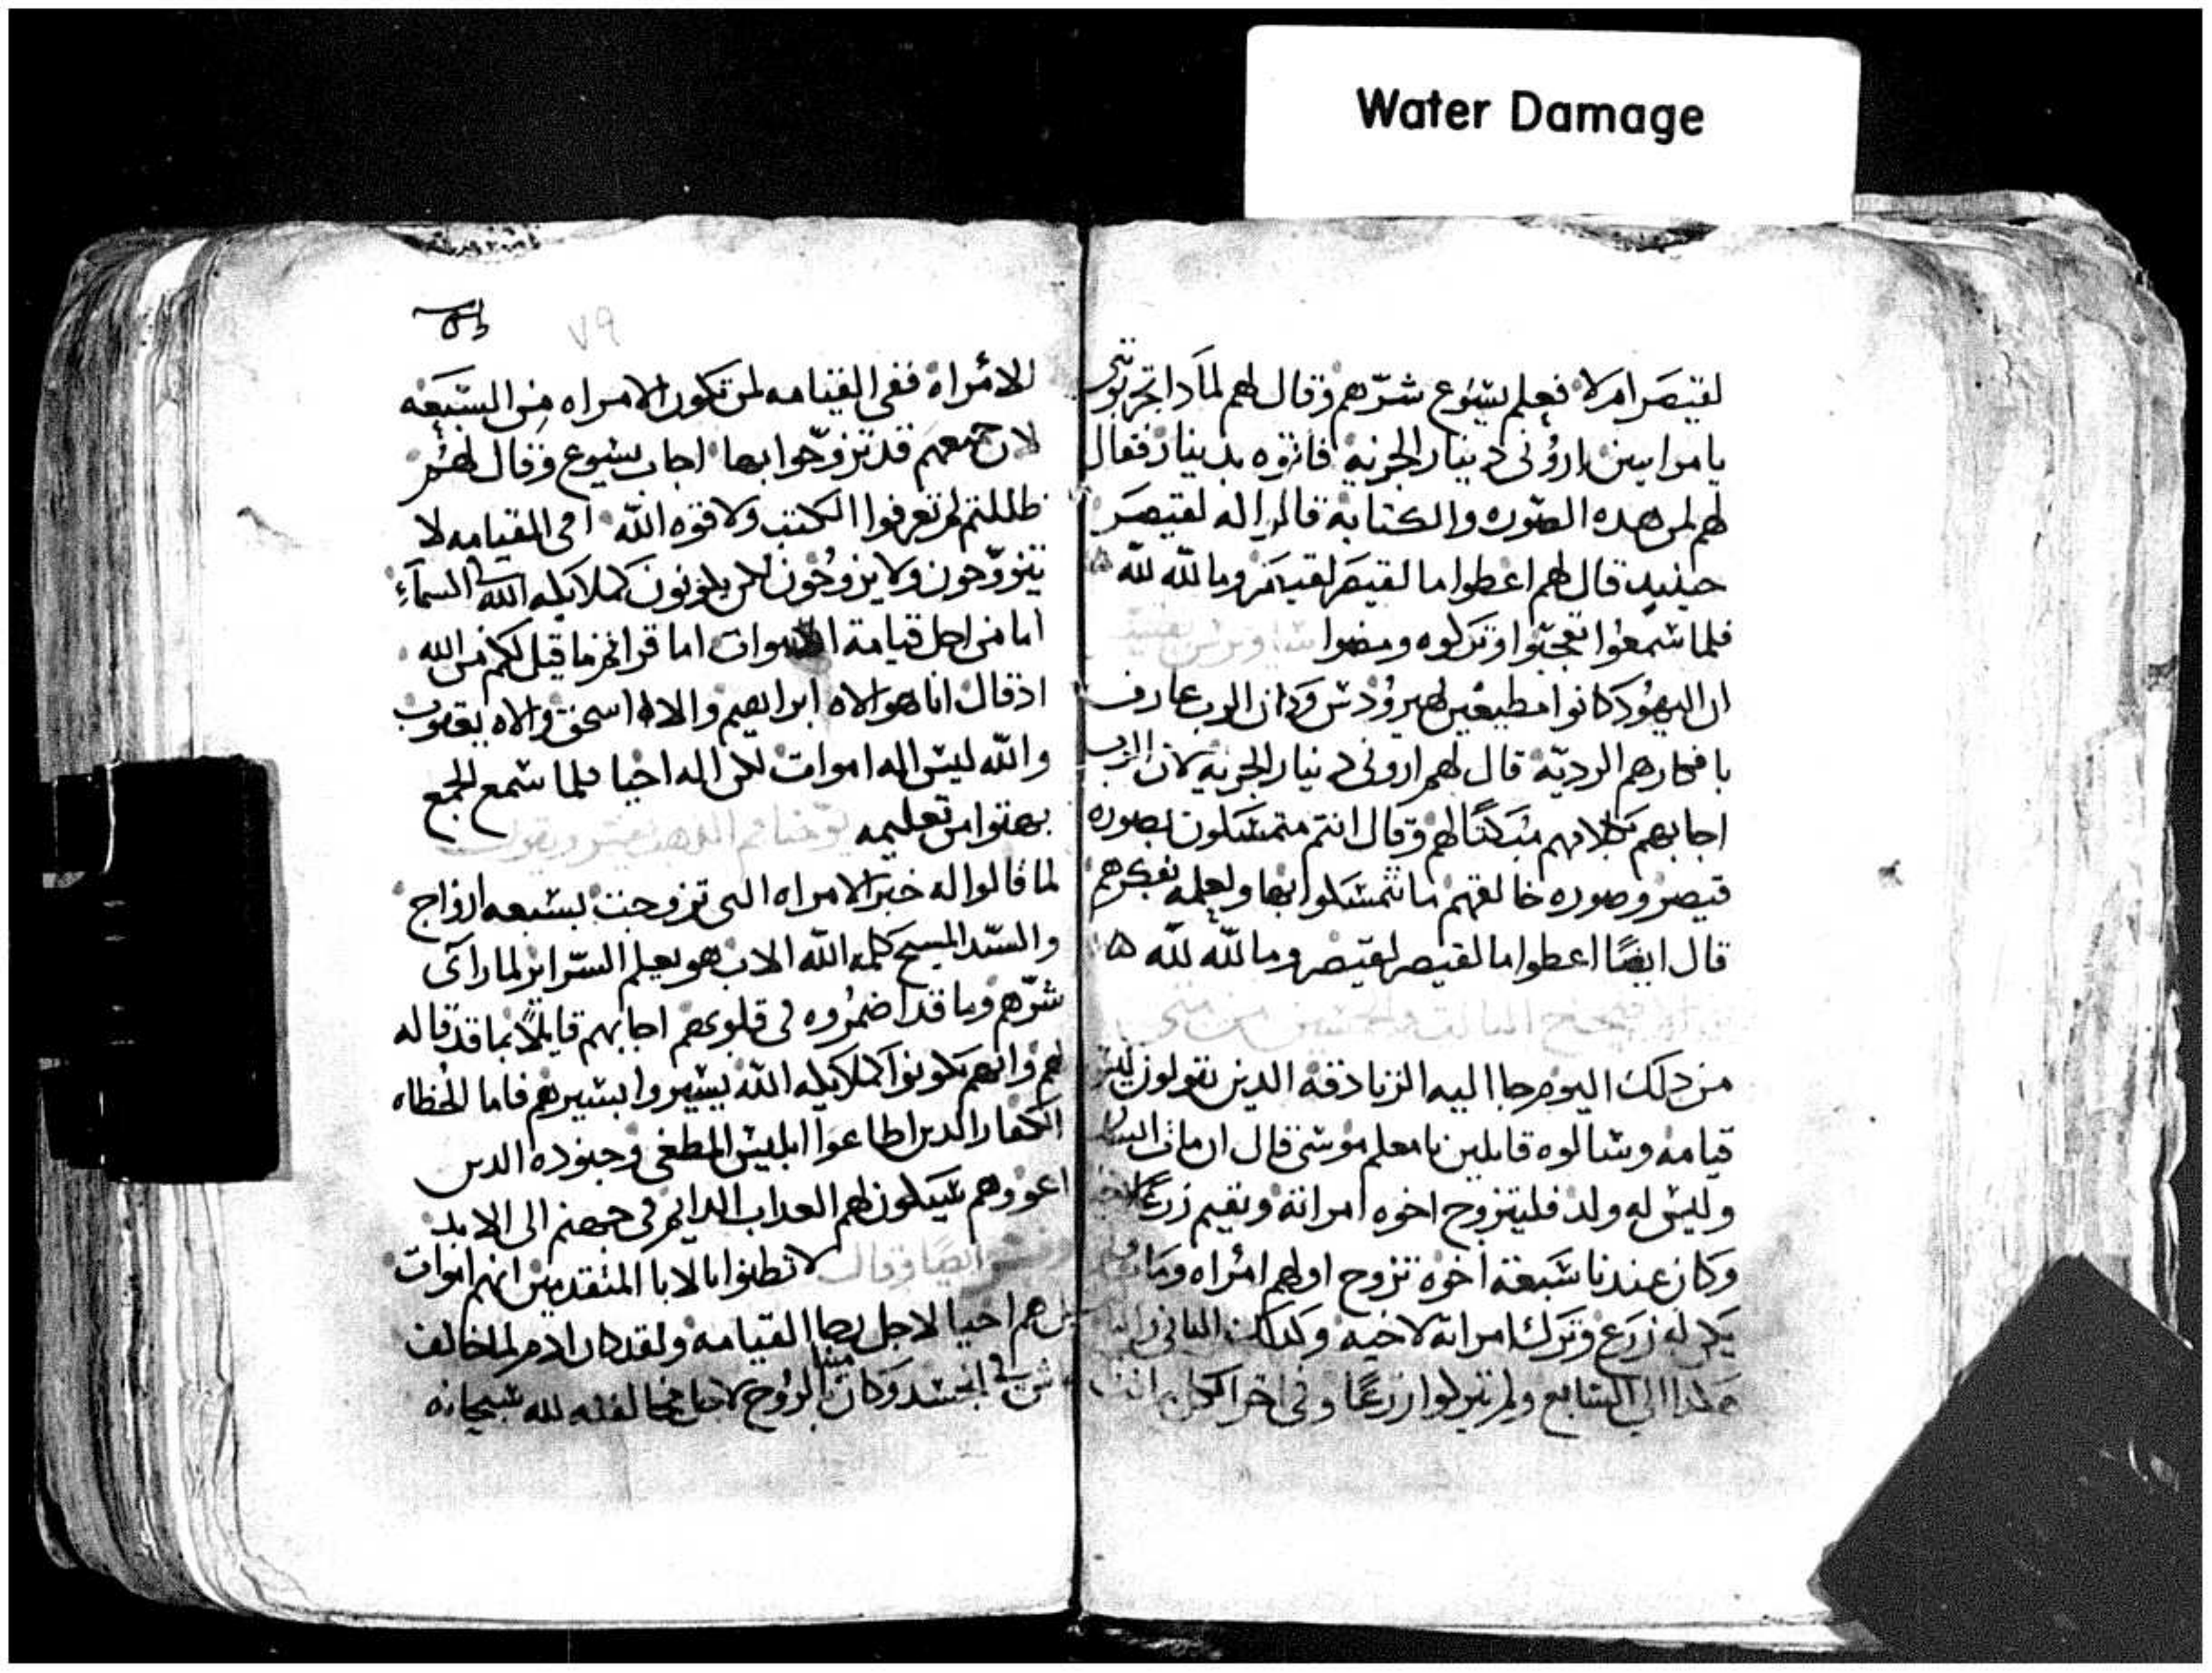 Water Damage
لقيصر ام لا فعلم يسوع شرهم وقال لهم لمادا تجربونى
يا مرايين ارونى دينار الجزية فاتوه بدينار فقال
لهم لمن هده الصوره والكتابة قالوا له لقيصر
حينيد قال لهم اعطوا ما لقيصر لقيصر وما لله لله
فلما سمعوا تعجبوا وتركوه ومضوا
ان اليهود كانوا مطيعين لهيرودس وكان الرب عارف
بافكارهم الردية قال لهم ارونى دينار الجزية لان الرب
اجابهم كلامهم مبكتا لهم وقال انتم متمسكون بصوره
قيصر وصوره خالقهم ما تتمسكوا بها ولعلمه بفكرهم
قال ايضا اعطوا ما لقيصر لقيصر وما لله لله
الثالث والخمسين من متى
من دلك اليوم جا اليه الزنادقة الدين يقولون ليس
قيامه وسالوه قايلين يا معلم موسى قال ان مات انسان
وليس له ولد فليتزوج اخوه امراته ويقيم زرعا لاخيه
وكان عندنا سبعة اخوه تزوج اولهم امراه ومات ولم
يكن له زرع وترك امراته لاخيه وكدلك الثانى والثالث
هكدا الى السابع ولم يتركوا زرعا وفى اخر الكل ماتت
٧٩
الامراة ففى القيامه لمن تكون الامراه من السبعه
لان جميعهم قد تزوجوا بها اجاب يسوع وقال لهم
ظللتم لم تعرفوا الكتب ولا قوه الله فى القيامه لا
يتزوجون ولا يزوجون لكن يكونون كملايكه الله السماء
اما من اجل قيامة الاموات اما قراتم ما قيل لكم من الله
اذ قال انا هو الاه ابراهيم والاه اسحق والاه يعقوب
والله ليس اله اموات لكن اله احيا فلما سمع الجمع
بهتوا من تعليمه يوحنا فم الدهب يفسر ويقول
لما قالوا له خبر الامراه التى تزوجت بسبعه ازواج
والسيد المسيح كلمة الله الاب هو يعلم السراير لما راى
شرهم وما قد اضمروه فى قلوبهم اجابهم قايلا بما قد قاله
لهم وانهم يكونوا كملايكه الله يسيروا بسيرهم فاما الخطاه
الكفار الدين اطاعوا ابليس المطغى وجنوده الدين
اغووهم سيكون لهم العداب الدايم فى جهنم الى الابد
وفسر ايضا وقال لا تظنوا بالابا المتقدمين انهم اموات
بل هم احيا لاجل رجا القيامه ولقد كان ادم المخالف
فى الجسد وكان ميتا بالروح لاجل مخالفته لله سبحانه